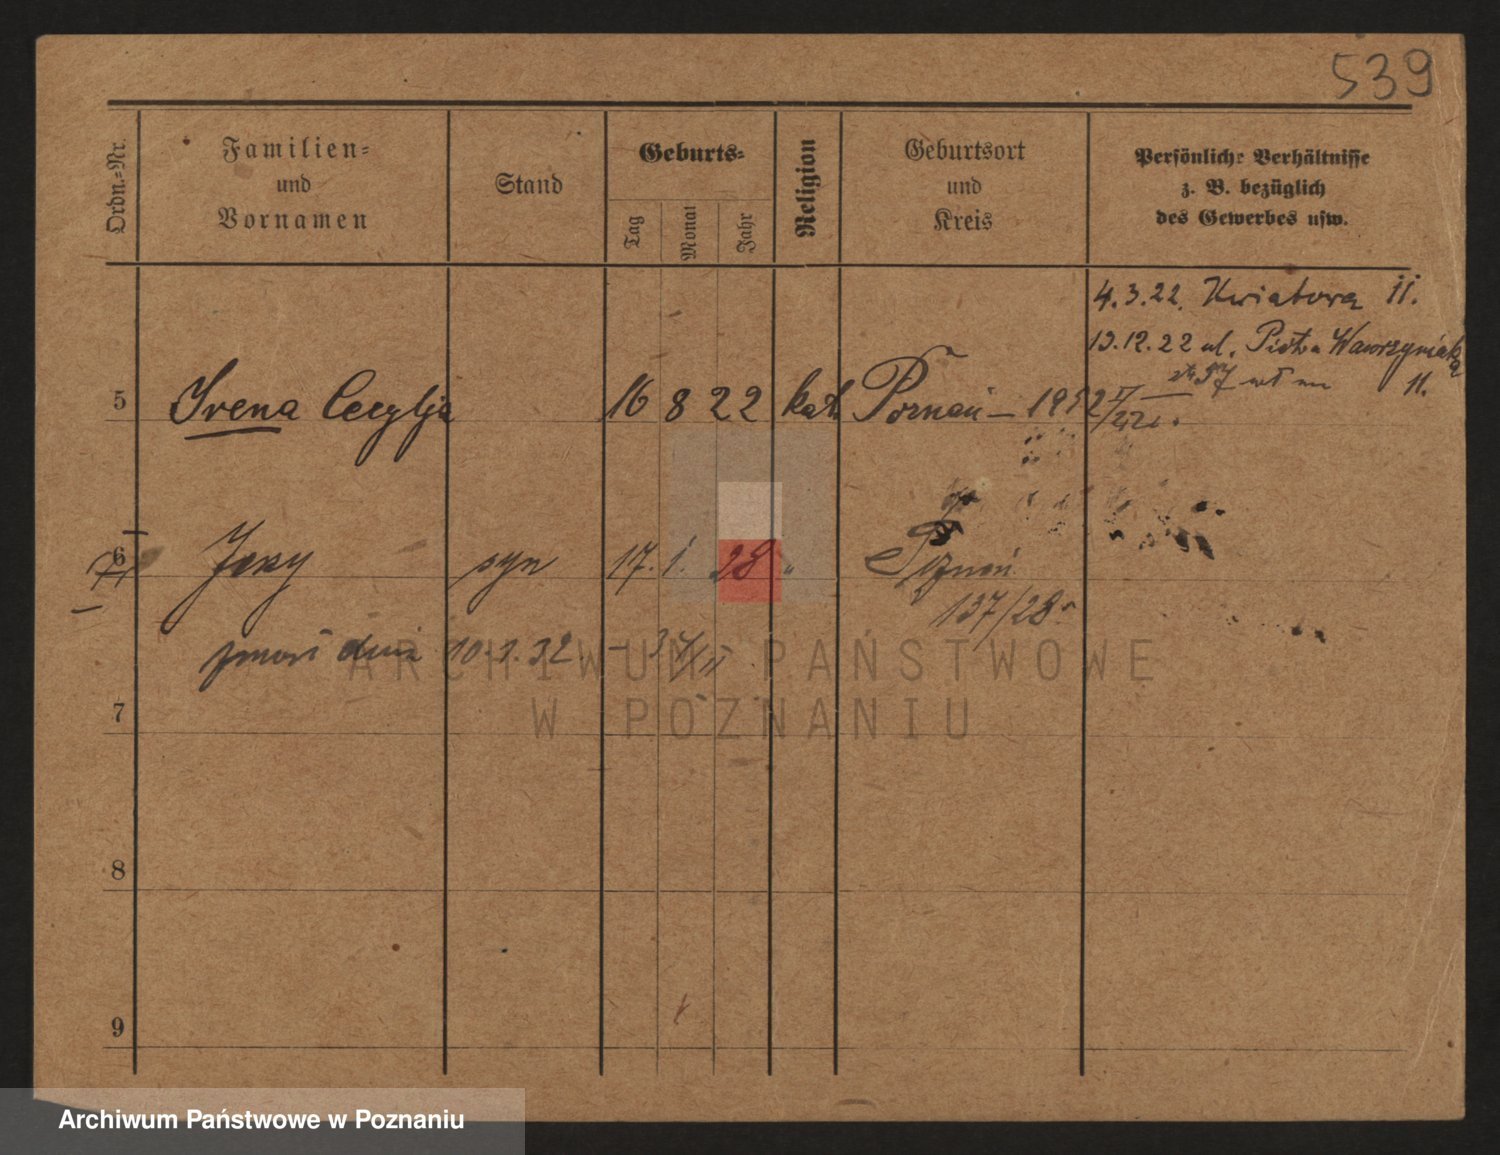 539
Ordn.-Nr.
Familien-
und
Vornamen
Stand
Geburts-
Tag
Monat
Jahr
Religion
Geburtsort
und
Kreis
Persönliche Verhältnisse
z. B. bezüglich
des Gewerbes usw.
4.3.22. Kwiatowa 11.
13.12.22 ul. Piotra Wawrzyniaka
37 11.
5 Irena Cecylja 16 8 22 kat Poznań
6 Jerzy syn 17. 1. 28 " Poznań
137/28.
zmarł dnia 10.1.32.
7
8
9
ARCHIWUM PAŃSTWOWE
W POZNANIU
Archiwum Państwowe w Poznaniu